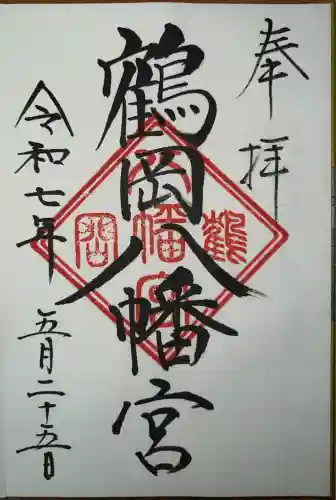 奉拝
鶴岡八幡宮
令和七年 五月二十五日
鶴
八幡宮
岡